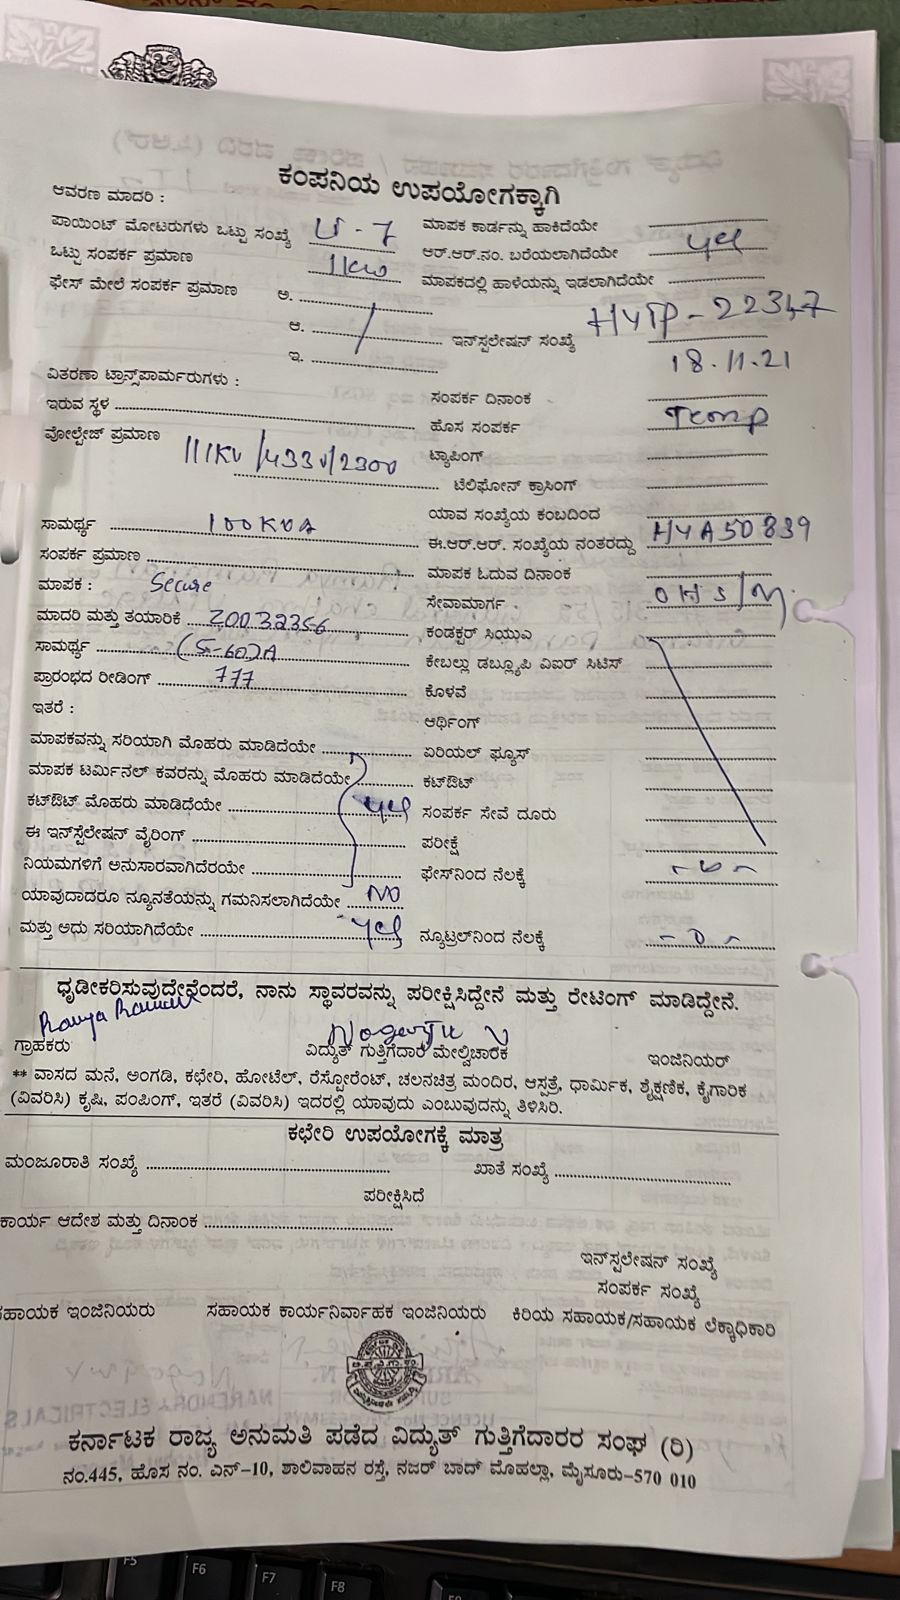 ಕಂಪನಿಯ ಉಪಯೋಗಕ್ಕಾಗಿ
ಆವರಣ ಮಾದರಿ :
ಪಾಯಿಂಟ್ ಮೋಟರುಗಳು ಒಟ್ಟು ಸಂಖ್ಯೆ
ಮಾಪಕ ಕಾರ್ಡನ್ನು ಹಾಕಿದೆಯೇ
ಒಟ್ಟು ಸಂಪರ್ಕ ಪ್ರಮಾಣ 1kw
ಆರ್.ಆರ್.ನಂ. ಬರೆಯಲಾಗಿದೆಯೇ yes
ಫೇಸ್ ಮೇಲೆ ಸಂಪರ್ಕ ಪ್ರಮಾಣ ಅ.
ಮಾಪಕದಲ್ಲಿ ಹಾಳೆಯನ್ನು ಇಡಲಾಗಿದೆಯೇ
ಆ.
ಇನ್‌ಸ್ಟಲೇಷನ್ ಸಂಖ್ಯೆ HYTP-22347
ಇ.
18.11.21
ವಿತರಣಾ ಟ್ರಾನ್ಸ್‌ಪಾರ್ಮರುಗಳು :
ಸಂಪರ್ಕ ದಿನಾಂಕ
ಇರುವ ಸ್ಥಳ
ಹೊಸ ಸಂಪರ್ಕ Temp
ವೋಲ್ಟೇಜ್ ಪ್ರಮಾಣ 11KV/433V/230V
ಟ್ಯಾಪಿಂಗ್
ಟೆಲಿಫೋನ್ ಕ್ರಾಸಿಂಗ್
ಯಾವ ಸಂಖ್ಯೆಯ ಕಂಬದಿಂದ
ಸಾಮರ್ಥ್ಯ 100KVA
ಈ.ಆರ್.ಆರ್. ಸಂಖ್ಯೆಯ ನಂತರದ್ದು HYA50839
ಸಂಪರ್ಕ ಪ್ರಮಾಣ
ಮಾಪಕ ಓದುವ ದಿನಾಂಕ
ಮಾಪಕ : Secure
ಸೇವಾಮಾರ್ಗ
ಮಾದರಿ ಮತ್ತು ತಯಾರಿಕೆ 20032356
ಕಂಡಕ್ಟರ್ ಸಿಯುಎ
ಸಾಮರ್ಥ್ಯ (5-60)A
ಕೇಬಲ್ಲು ಡಬ್ಲ್ಯೂಪಿ ವಿಐರ್ ಸಿಟಿಸ್
ಪ್ರಾರಂಭದ ರೀಡಿಂಗ್ 777
ಕೊಳವೆ
ಇತರೆ :
ಆರ್ಥಿಂಗ್
ಮಾಪಕವನ್ನು ಸರಿಯಾಗಿ ಮೊಹರು ಮಾಡಿದೆಯೇ
ಏರಿಯಲ್ ಫ್ಯೂಸ್
ಮಾಪಕ ಟರ್ಮಿನಲ್ ಕವರನ್ನು ಮೊಹರು ಮಾಡಿದೆಯೇ
ಕಟ್‌ಔಟ್
ಕಟ್‌ಔಟ್ ಮೊಹರು ಮಾಡಿದೆಯೇ yes
ಸಂಪರ್ಕ ಸೇವೆ ದೂರು
ಈ ಇನ್‌ಸ್ಟೆಲೇಷನ್ ವೈರಿಂಗ್
ಪರೀಕ್ಷೆ
ನಿಯಮಗಳಿಗೆ ಅನುಸಾರವಾಗಿದೆರಯೇ
ಫೇಸ್‌ನಿಂದ ನೆಲಕ್ಕೆ
ಯಾವುದಾದರೂ ನ್ಯೂನತೆಯನ್ನು ಗಮನಿಸಲಾಗಿದೆಯೇ NO
ಮತ್ತು ಅದು ಸರಿಯಾಗಿದೆಯೇ yes
ನ್ಯೂಟ್ರಲ್‌ನಿಂದ ನೆಲಕ್ಕೆ
ಧೃಡೀಕರಿಸುವುದೇನೆಂದರೆ, ನಾನು ಸ್ಥಾವರವನ್ನು ಪರೀಕ್ಷಿಸಿದ್ದೇನೆ ಮತ್ತು ರೇಟಿಂಗ್ ಮಾಡಿದ್ದೇನೆ.
ಗ್ರಾಹಕರು ವಿದ್ಯುತ್ ಗುತ್ತಿಗೆದಾರ ಮೇಲ್ವಿಚಾರಕ ಇಂಜಿನಿಯರ್
** ವಾಸದ ಮನೆ, ಅಂಗಡಿ, ಕಛೇರಿ, ಹೋಟೆಲ್, ರೆಸ್ಟೋರೆಂಟ್, ಚಲನಚಿತ್ರ ಮಂದಿರ, ಆಸ್ಪತ್ರೆ, ಧಾರ್ಮಿಕ, ಶೈಕ್ಷಣಿಕ, ಕೈಗಾರಿಕ
(ವಿವರಿಸಿ) ಕೃಷಿ, ಪಂಪಿಂಗ್, ಇತರೆ (ವಿವರಿಸಿ) ಇದರಲ್ಲಿ ಯಾವುದು ಎಂಬುವುದನ್ನು ತಿಳಿಸಿರಿ.
ಕಛೇರಿ ಉಪಯೋಗಕ್ಕೆ ಮಾತ್ರ
ಮಂಜೂರಾತಿ ಸಂಖ್ಯೆ ಖಾತೆ ಸಂಖ್ಯೆ
ಪರೀಕ್ಷಿಸಿದೆ
ಕಾರ್ಯ ಆದೇಶ ಮತ್ತು ದಿನಾಂಕ
ಇನ್‌ಸ್ಟಲೇಷನ್ ಸಂಖ್ಯೆ
ಸಂಪರ್ಕ ಸಂಖ್ಯೆ
ಸಹಾಯಕ ಇಂಜಿನಿಯರು ಸಹಾಯಕ ಕಾರ್ಯನಿರ್ವಾಹಕ ಇಂಜಿನಿಯರು ಕಿರಿಯ ಸಹಾಯಕ/ಸಹಾಯಕ ಲೆಕ್ಕಾಧಿಕಾರಿ
ಕರ್ನಾಟಕ ರಾಜ್ಯ ಅನುಮತಿ ಪಡೆದ ವಿದ್ಯುತ್ ಗುತ್ತಿಗೆದಾರರ ಸಂಘ (ರಿ)
ನಂ.445, ಹೊಸ ನಂ. ಎನ್–10, ಶಾಲಿವಾಹನ ರಸ್ತೆ, ನಜರ್ ಬಾದ್ ಮೊಹಲ್ಲಾ, ಮೈಸೂರು–570 010
F5
F6
F7
F8